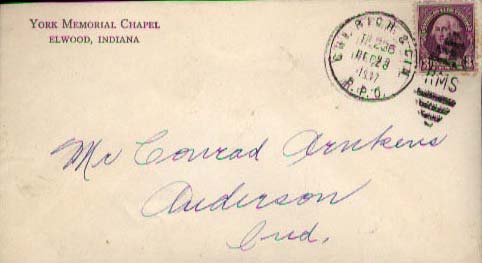 York Memorial Chapel
ELWOOD, INDIANA
CHI. RICH. & CIN.
TR. 236
DEC 28
1937
R.P.O.
RMS
3 3
Mr Conrad Arnkens
Anderson
Ind.